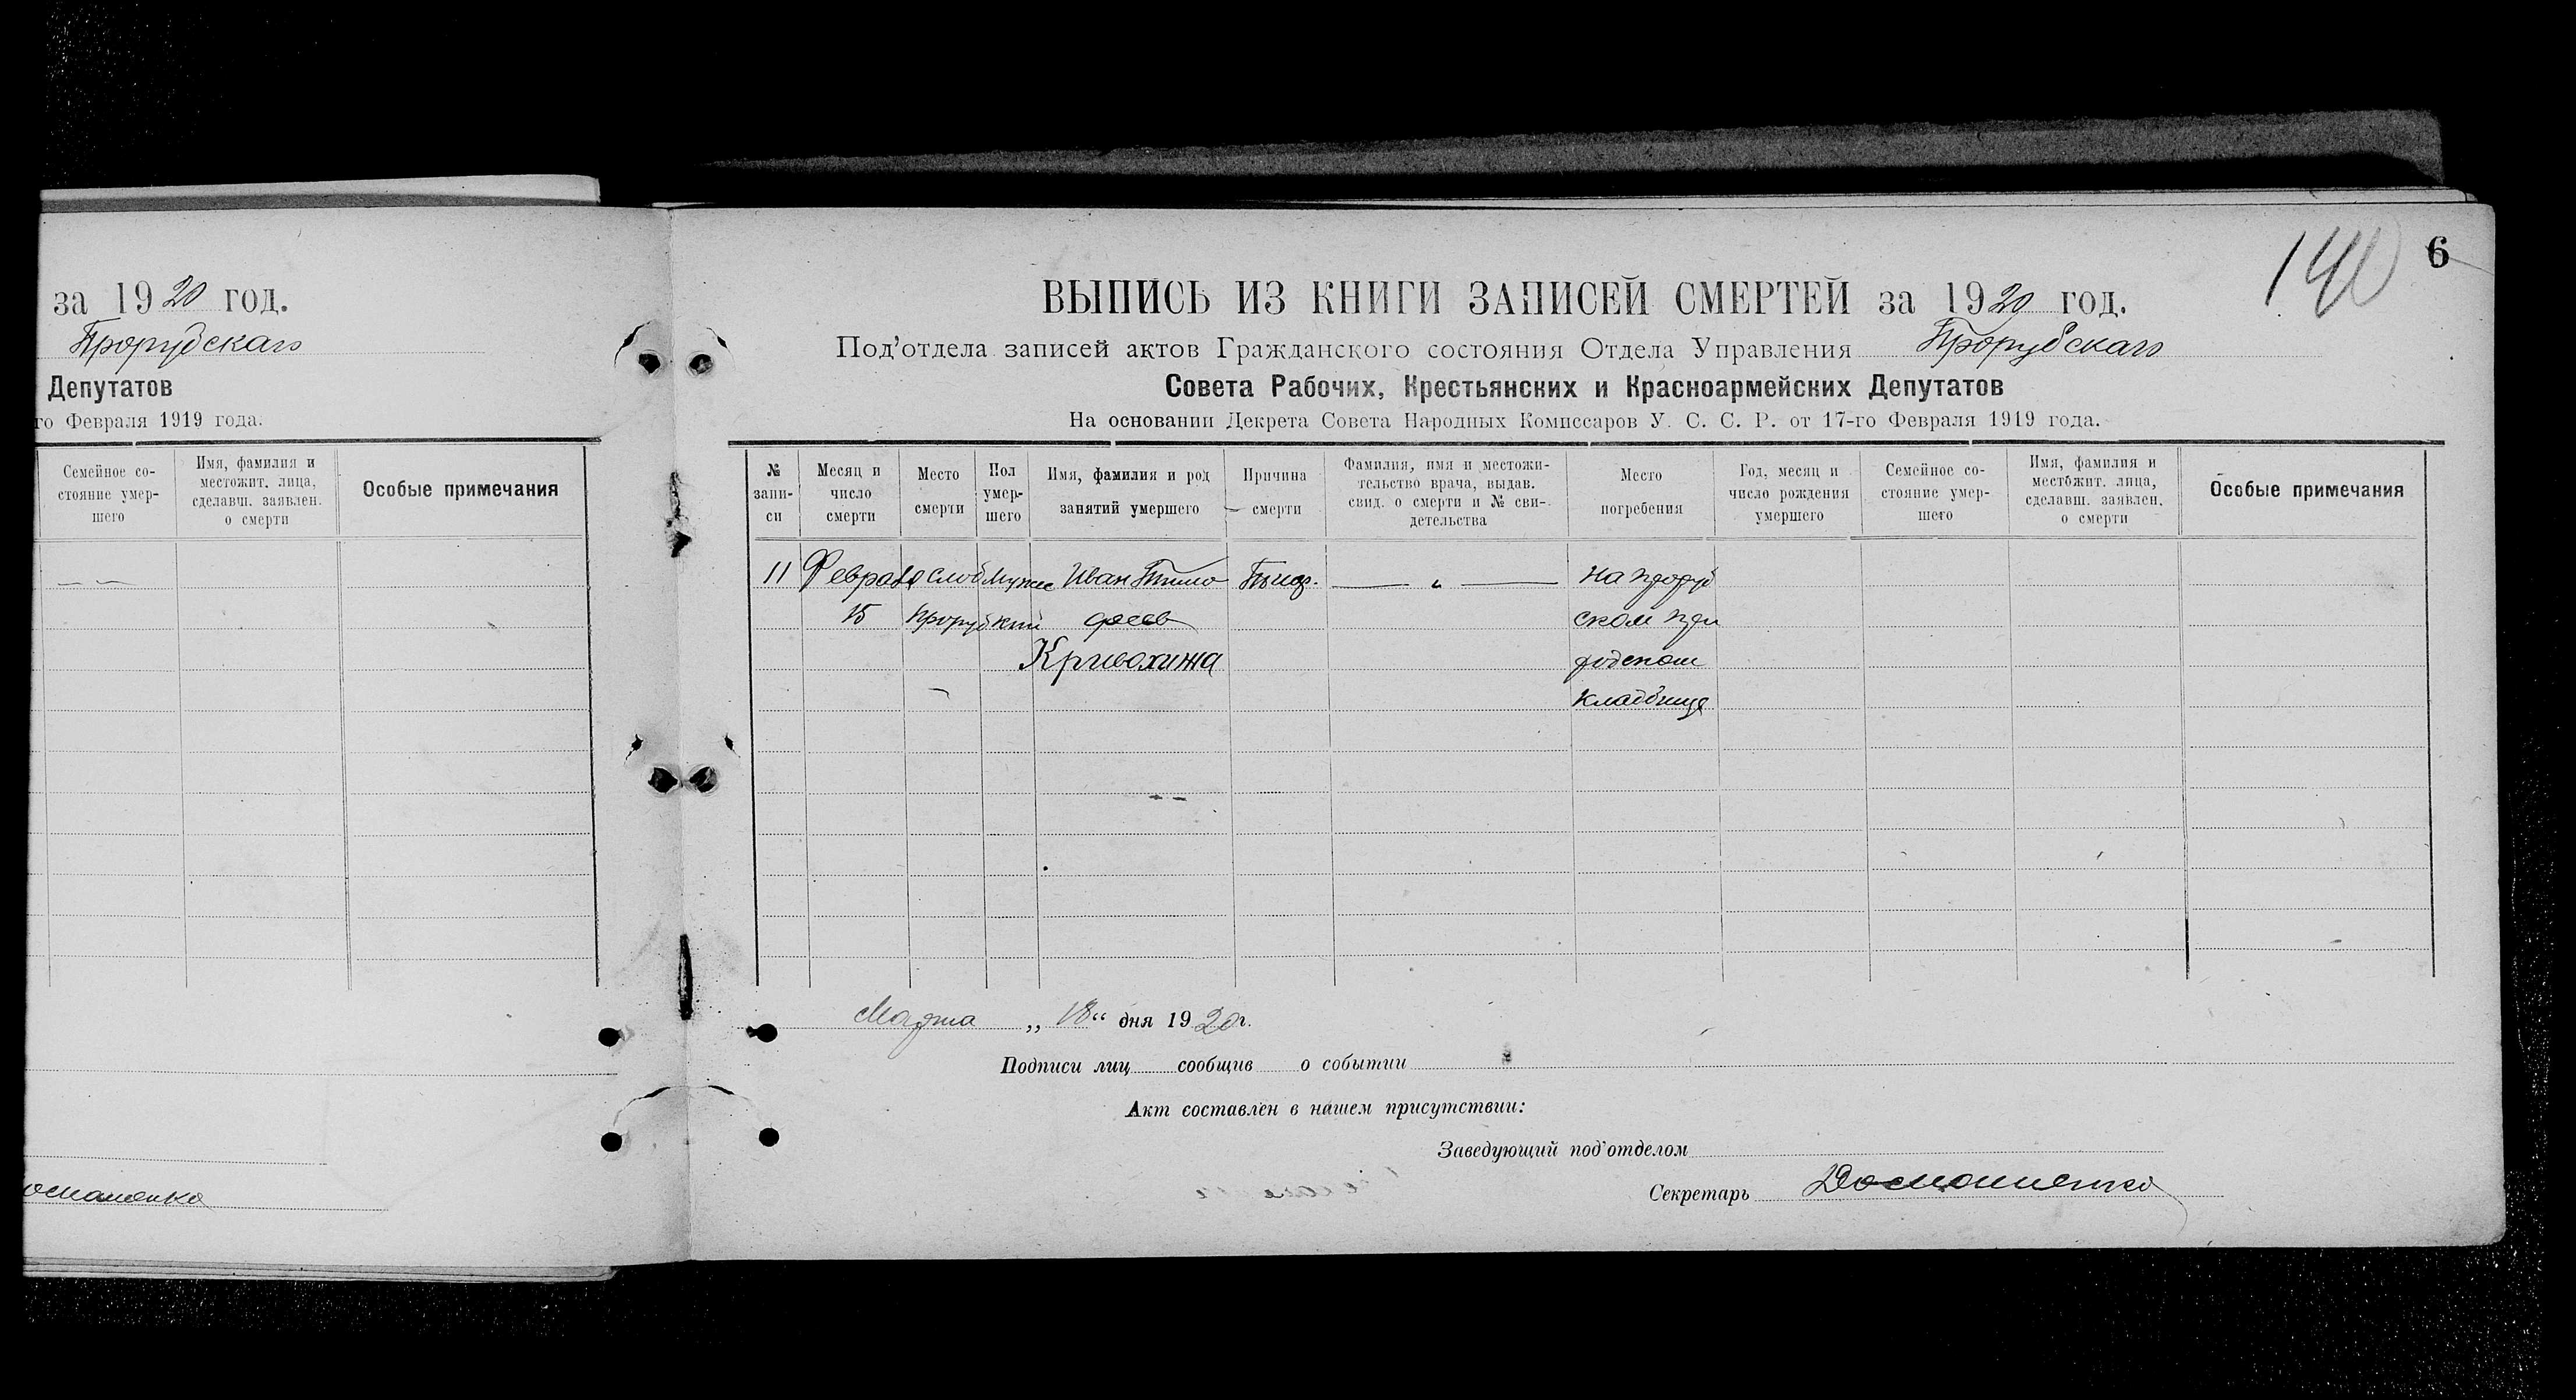 за 1920 год.
Прорубскаго
Депутатов
го Февраля 1919 года.
Семейное со-
стояние умер-
шего
Имя, фамилия и
местожит. лица,
сделавш. заявлен.
о смерти
Особые примечания
140
6
ВЫПИСЬ ИЗ КНИГИ ЗАПИСЕЙ СМЕРТЕЙ за 1920 год.
Под'отдела записей актов Гражданского состояния Отдела Управления Прорубскаго
Совета Рабочих, Крестьянских и Красноармейских Депутатов
На основании Декрета Совета Народных Комиссаров У. С. С. Р. от 17-го Февраля 1919 года.
№
запи-
си
Месяц и
число
смерти
Место
смерти
Пол
умер-
шего
Имя, фамилия и род
занятий умершего
Причина
смерти
Фамилия, имя и местожи-
тельство врача, выдав.
свид. о смерти и № сви-
детельства
Место
погребения
Год, месяц и
число рождения
умершего
Семейное со-
стояние умер-
шего
Имя, фамилия и
местожит. лица,
сделавш. заявлен.
о смерти
Особые примечания
11
Февраля
15
слоб
Прорубки
Мужс
Иван Тимо
феев
Кривохижа
на Проруб
ском При
ходском
кладбище
Марта „ 18 “ дня 1920 г.
Подписи лиц сообщив о событии
Акт составлен в нашем присутствии:
Заведующий под'отделом
Секретарь